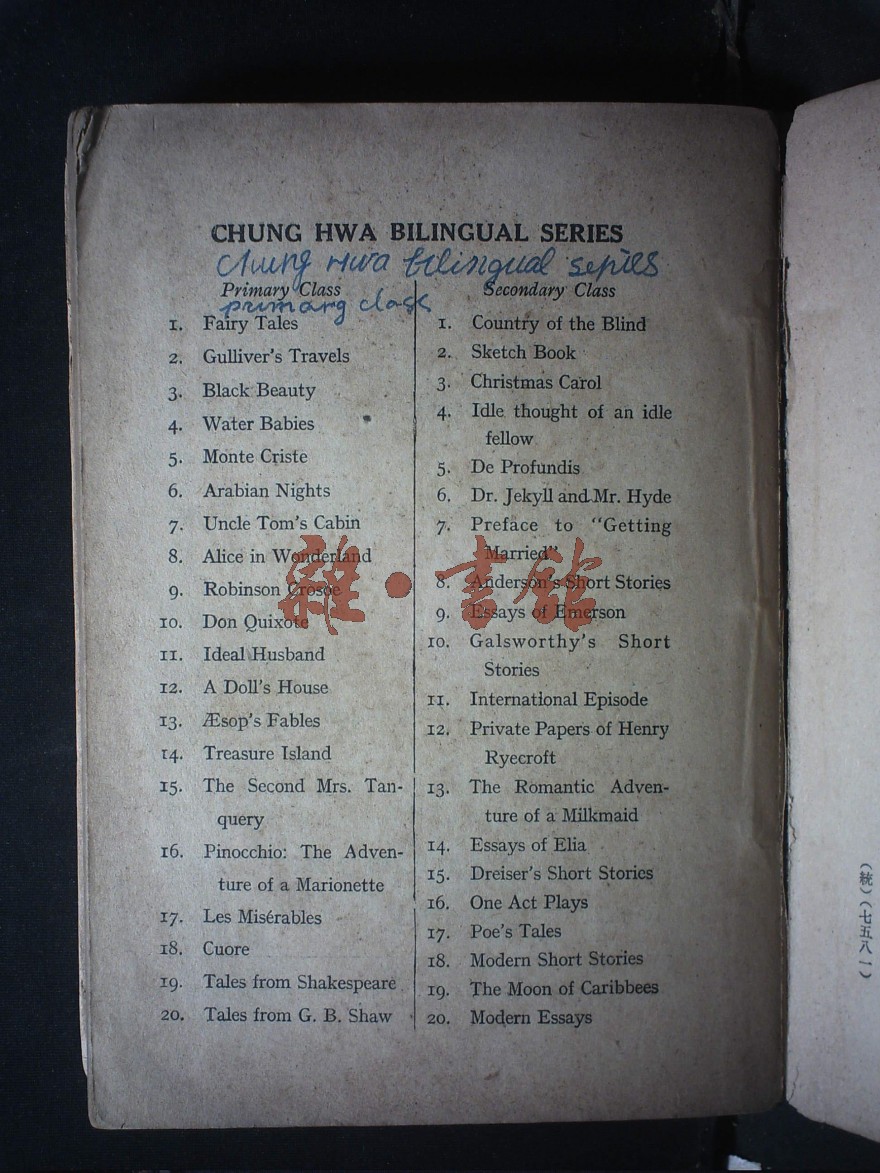 CHUNG HWA BILINGUAL SERIES
Chung Hwa bilingual series
Primary Class
primary class
1. Fairy Tales
2. Gulliver's Travels
3. Black Beauty
4. Water Babies
5. Monte Criste
6. Arabian Nights
7. Uncle Tom's Cabin
8. Alice in Wonderland
9. Robinson Crosoe
10. Don Quixote
11. Ideal Husband
12. A Doll's House
13. Æsop's Fables
14. Treasure Island
15. The Second Mrs. Tan-
query
16. Pinocchio: The Adven-
ture of a Marionette
17. Les Misérables
18. Cuore
19. Tales from Shakespeare
20. Tales from G. B. Shaw
Secondary Class
1. Country of the Blind
2. Sketch Book
3. Christmas Carol
4. Idle thought of an idle
fellow
5. De Profundis
6. Dr. Jekyll and Mr. Hyde
7. Preface to "Getting
Married"
8. Anderson's Short Stories
9. Essays of Emerson
10. Galsworthy's Short
Stories
11. International Episode
12. Private Papers of Henry
Ryecroft
13. The Romantic Adven-
ture of a Milkmaid
14. Essays of Elia
15. Dreiser's Short Stories
16. One Act Plays
17. Poe's Tales
18. Modern Short Stories
19. The Moon of Caribbees
20. Modern Essays
雜·書館
(統)(七五八一)